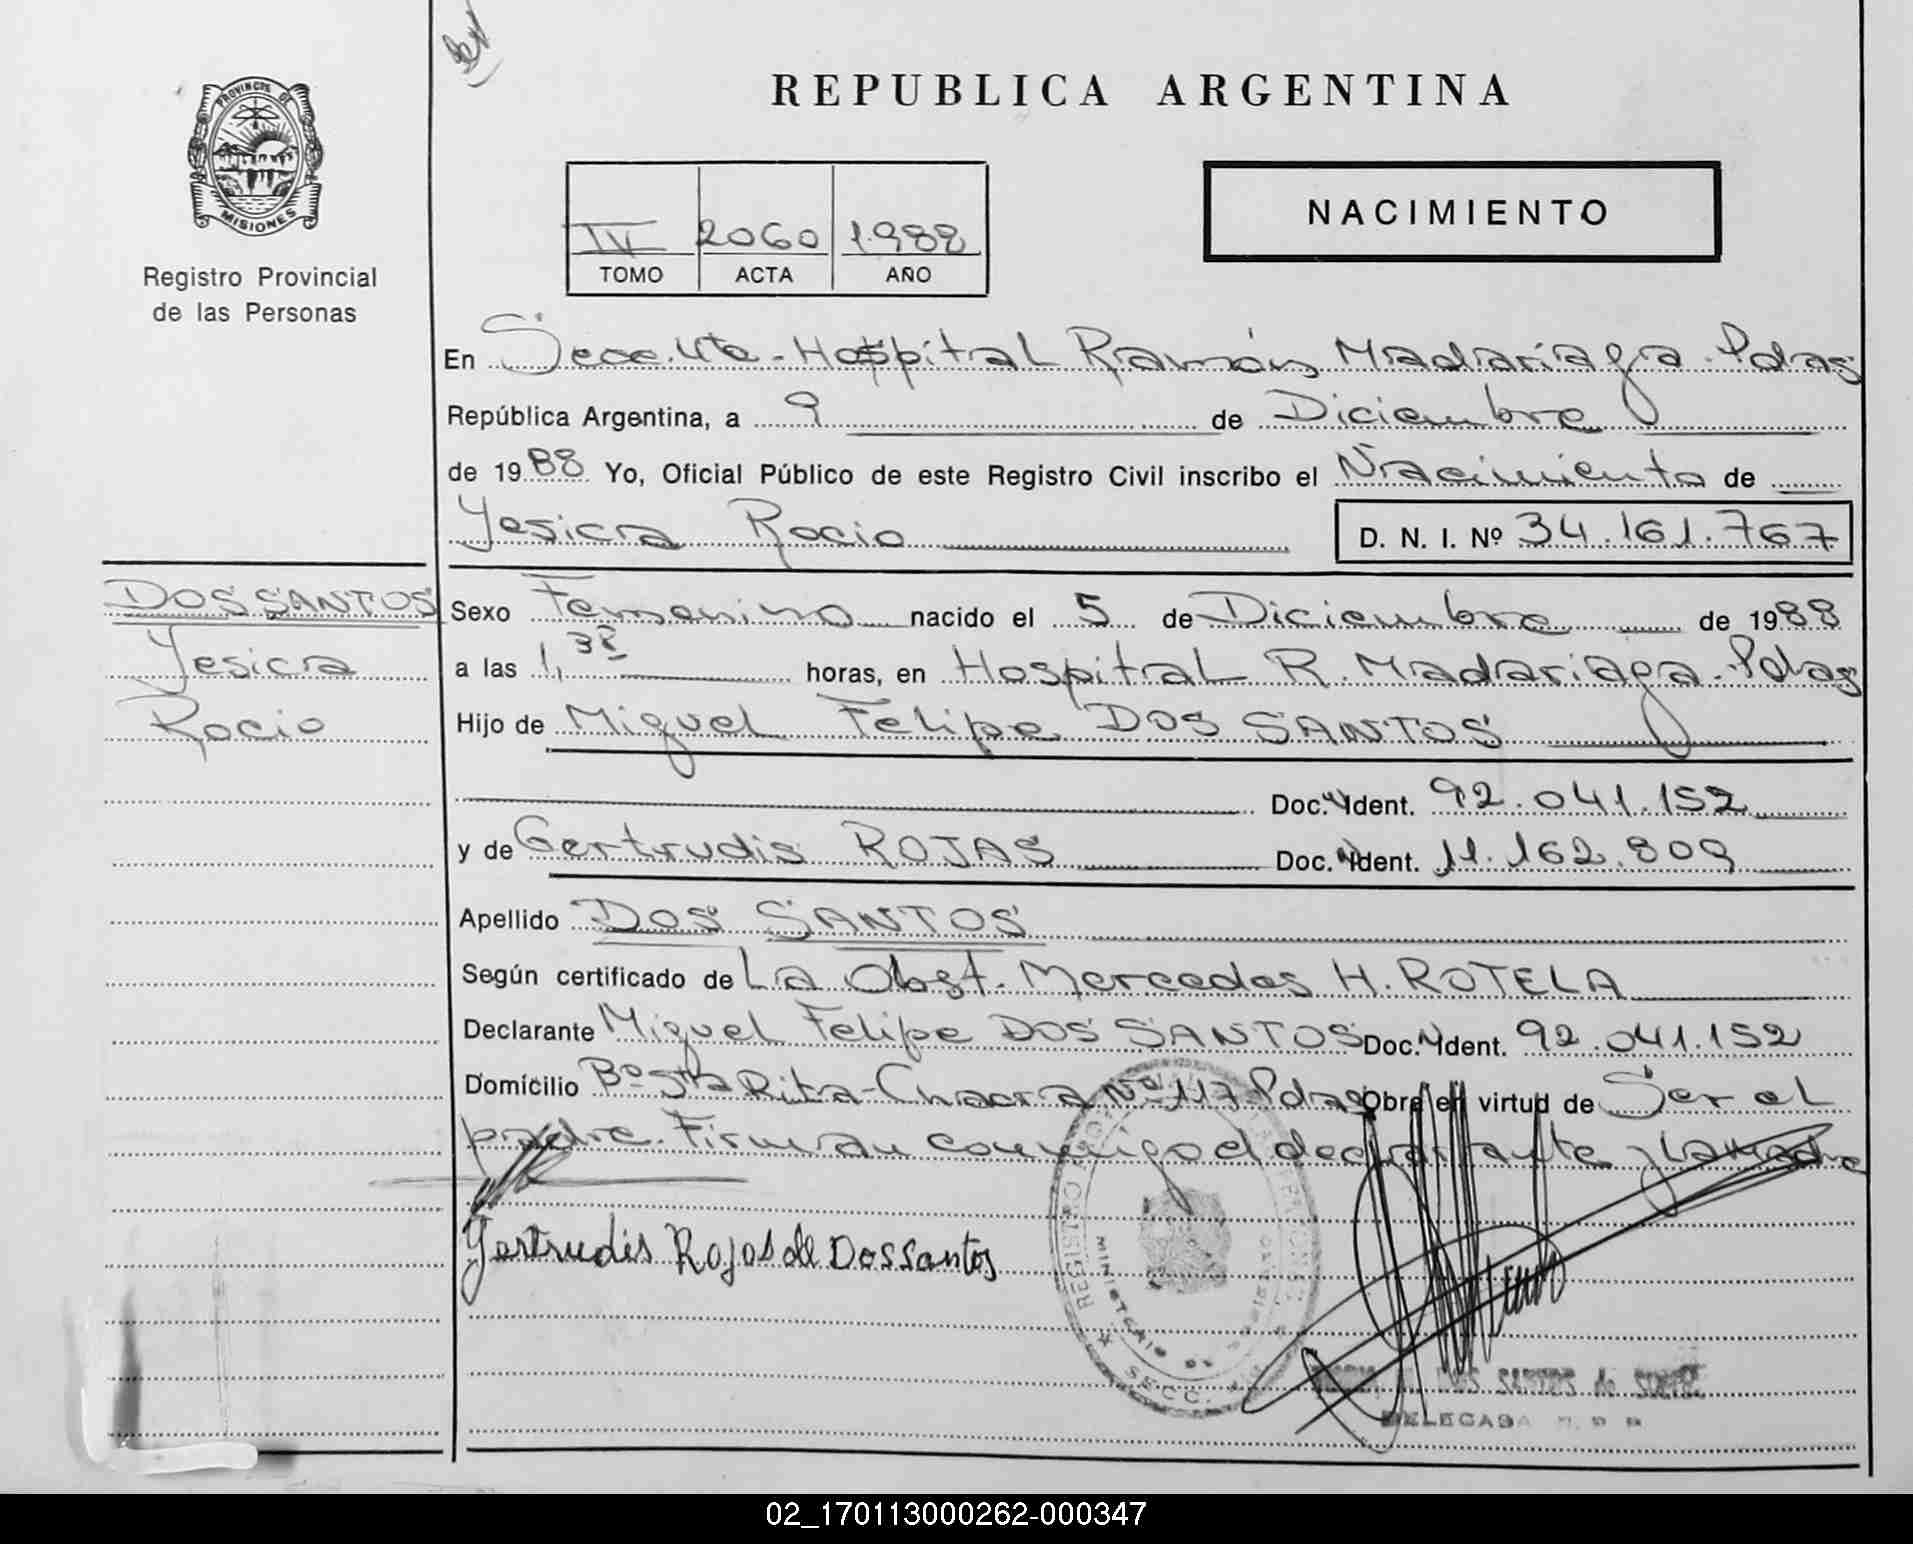 REPUBLICA ARGENTINA
PROVINCIA DE
MISIONES
Registro Provincial
de las Personas
IV 2060 1.988
TOMO ACTA AÑO
NACIMIENTO
En Secc. 4ta - Hospital Ramón Madariaga. Pdas
República Argentina, a 9 de Diciembre
de 1988 Yo, Oficial Público de este Registro Civil inscribo el Nacimiento de
Yesica Rocio D. N. I. Nº 34.161.767
DOS SANTOS
Yesica
Rocio
Sexo Femenino nacido el 5 de Diciembre de 1988
a las 1,38 horas, en Hospital R. Madariaga. Pdas
Hijo de Miguel Felipe DOS SANTOS
Doc. Ident. 92.041.152
y de Gertrudis ROJAS Doc. Ident. 11.162.809
Apellido DOS SANTOS
Según certificado de La Obst. Mercedes H. ROTELA
Declarante Miguel Felipe DOS SANTOS Doc. Ident. 92.041.152
Domicilio Bº Sta Rita - Chacra Nº 117 Pdas Obra en virtud de Ser el
padre. Firman conmigo el declarante y la madre
Gertrudis Rojas de Dos santos
SECC.
DELEGADA
02_170113000262-000347